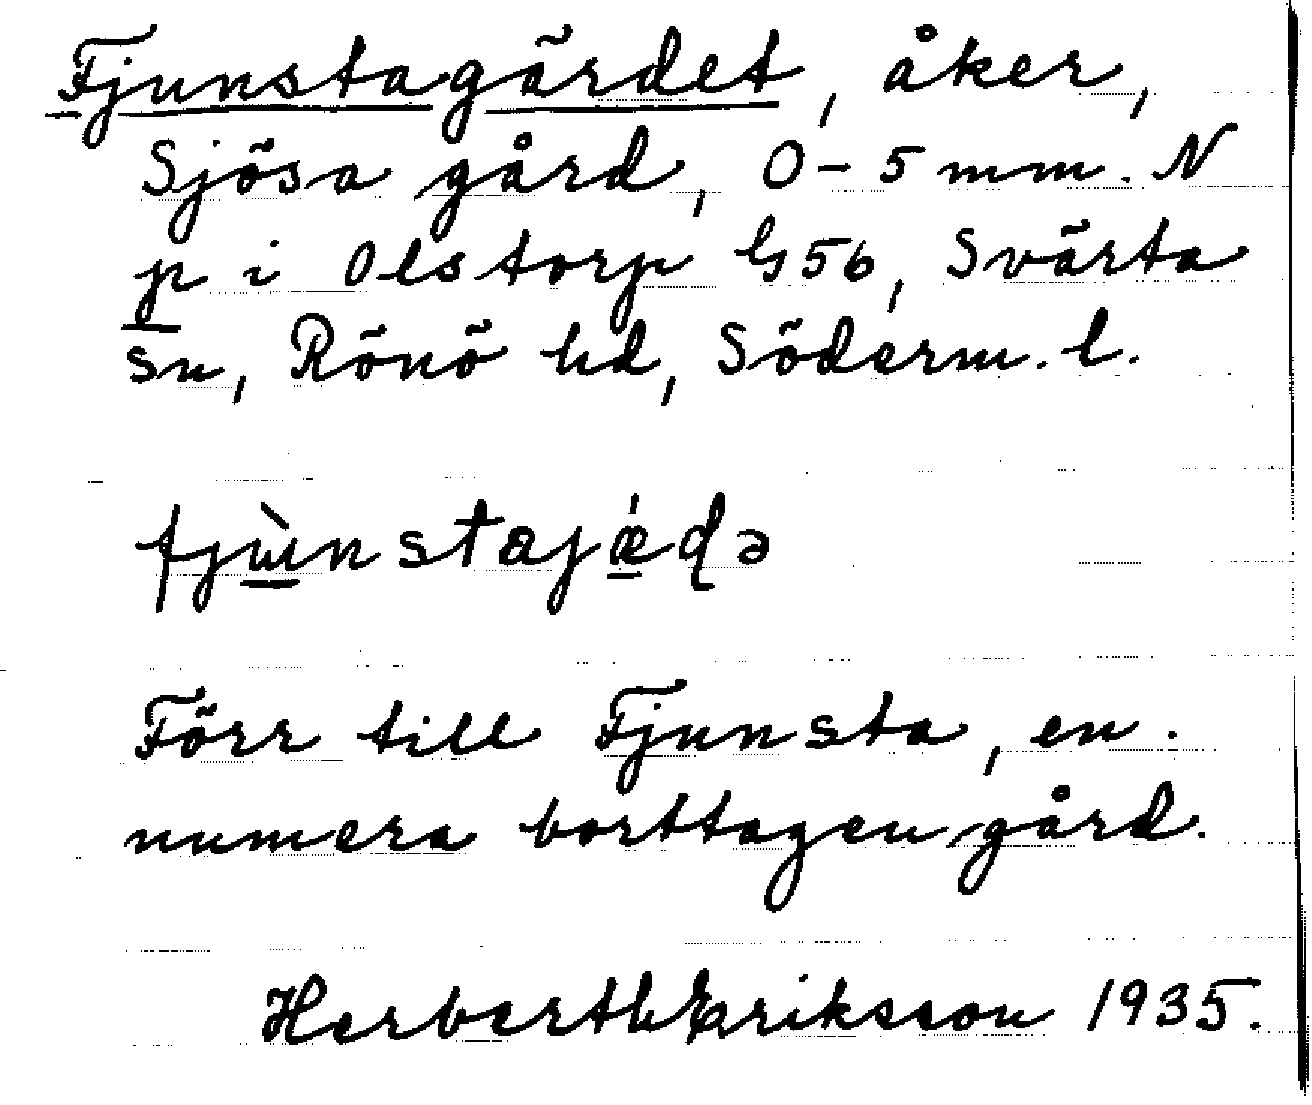 Fjunstagärdet, åker,
Sjösa gård, 0-5 mm. N
p i Olstorp G56, Svärta
sn, Rönö hd, Söderm. l.
fjɯ̀nstajǽɖə
Förr till Fjunsta, en
numera borttagen gård.
Herbert Eriksson 1935.